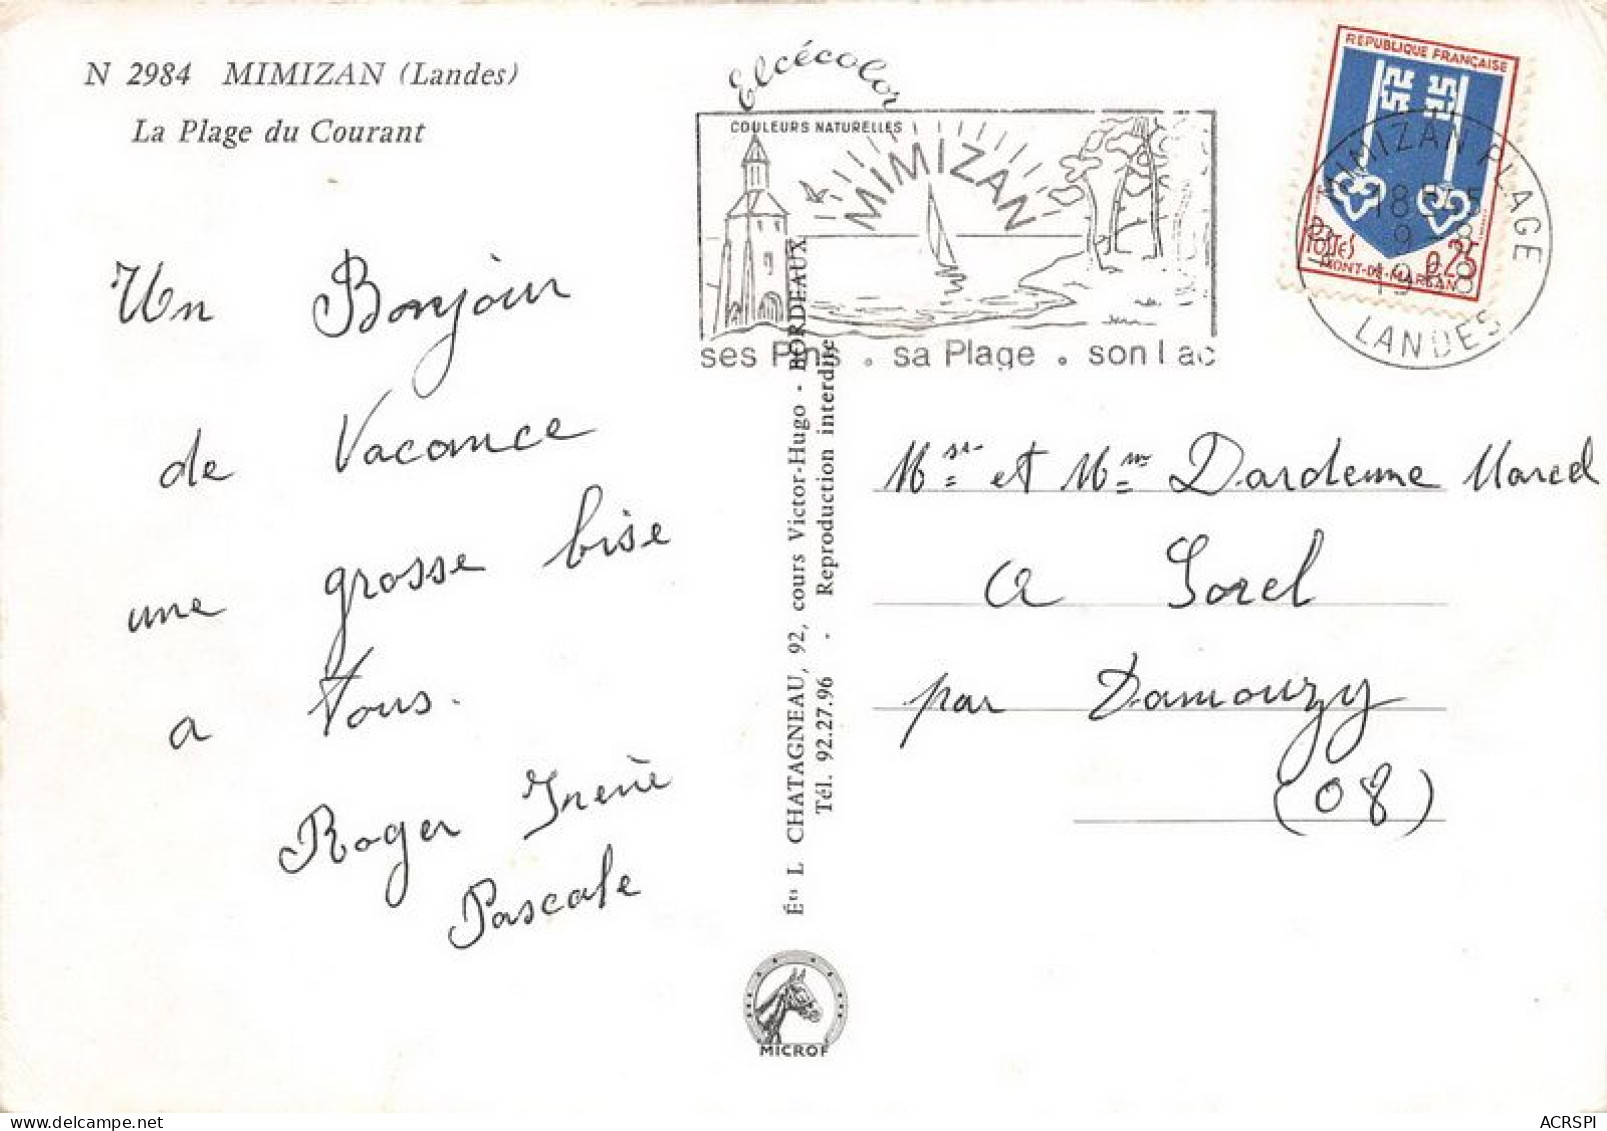 N 2984 MIMIZAN (Landes)
La Plage du Courant
Un Bonjour
de Vacance
une grosse bise
a Tous.
Roger Irène
Pascale
Elcécolor
COULEURS NATURELLES
MIMIZAN
ses Pins . sa Plage . son lac
RÉPUBLIQUE FRANÇAISE
POSTES 0,25
MONT-DE-MARSAN
MIMIZAN PLAGE
LANDES
Éts L CHATAGNEAU, 92, cours Victor-Hugo - BORDEAUX
Tél. 92.27.96 - Reproduction interdite
Msr et Mme Dardenne Marcel
a Sorel
par Damouzy
(08)
MICROF
ACRSPI